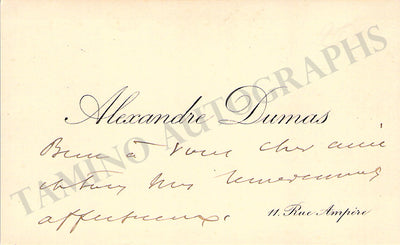 TAMINO AUTOGRAPHS
Alexandre Dumas
Bien à vous cher ami
et tous mes remerciements
affectueux.
11. Rue Ampère